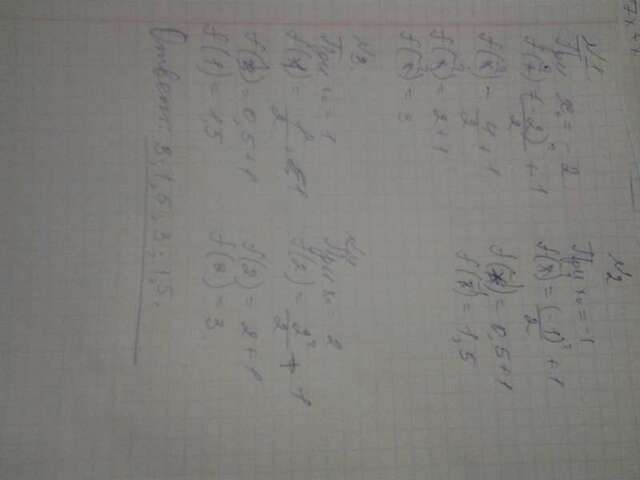 №1
При x₀ = -2
f(x) = (-2)² / 2 + 1
f(x) = 4/2 + 1
f(x) = 2 + 1
f(x) = 3
№2
При x₀ = -1
f(x) = (-1)² / 2 + 1
f(x) = 0,5 + 1
f(x) = 1,5
№3
При x₀ = 1
f(1) = 1² / 2 + 1
f(1) = 0,5 + 1
f(1) = 1,5
№4
При x₀ = 2
f(2) = 2² / 2 + 1
f(2) = 2 + 1
f(2) = 3
Ответ: 3; 1,5; 3; 1,5.